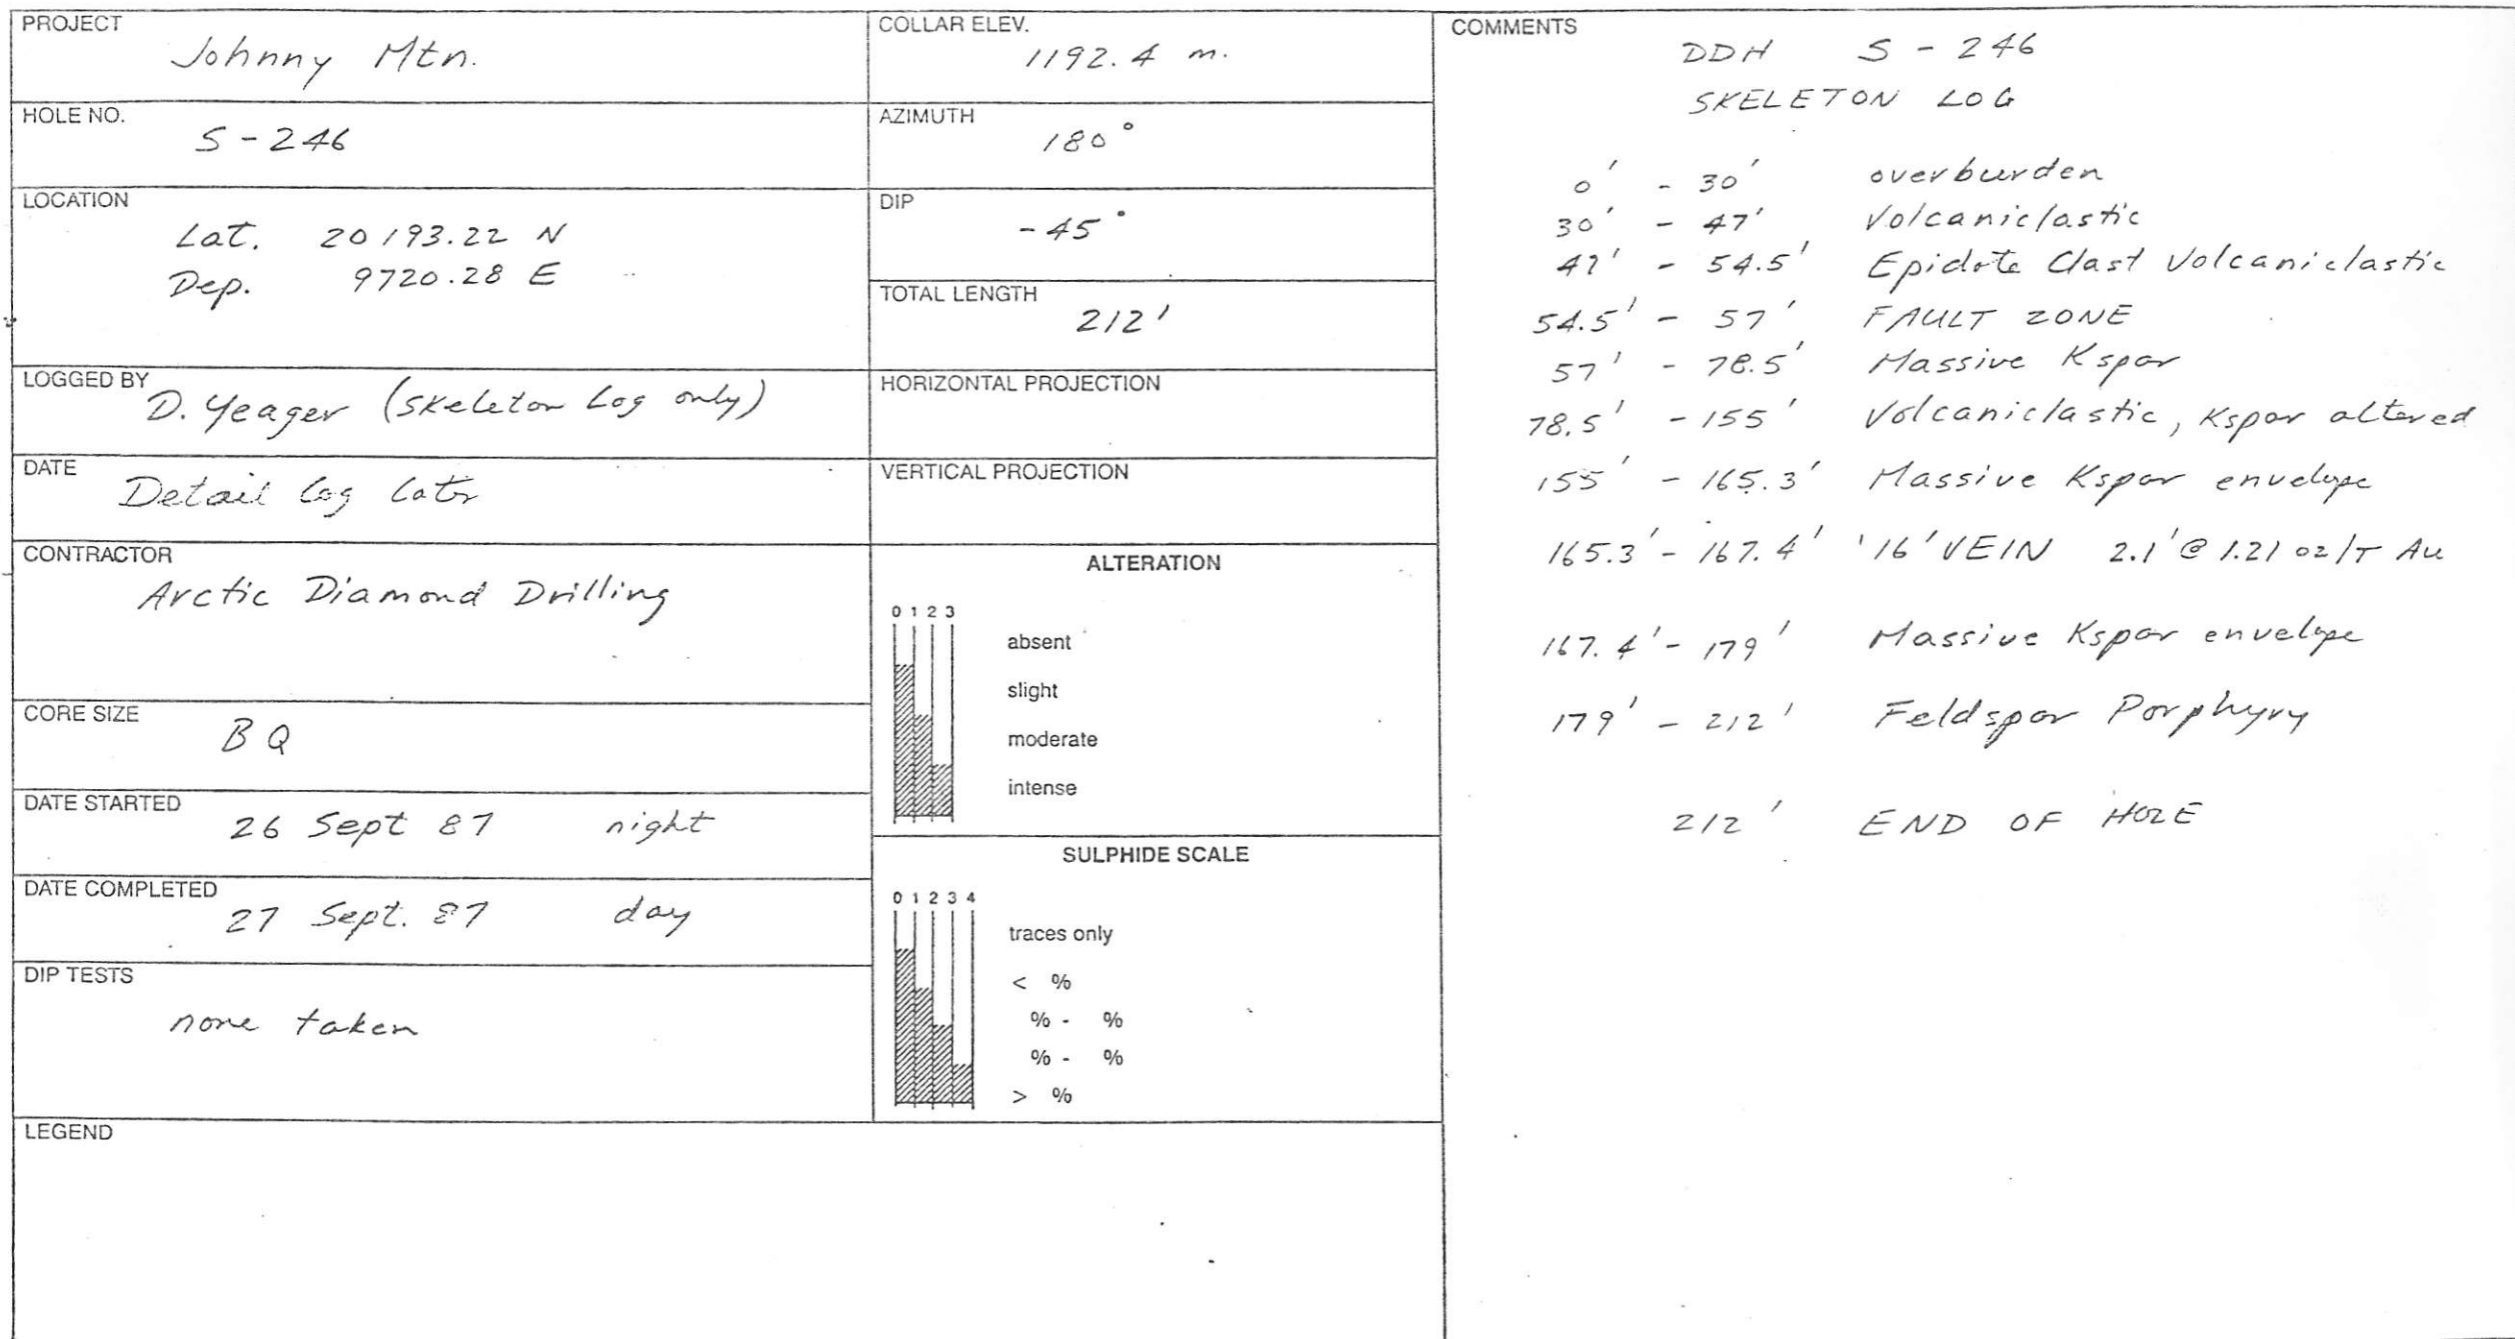 PROJECT
Johnny Mtn.
HOLE NO.
S-246
LOCATION
Lat. 20193.22 N
Dep. 9720.28 E
LOGGED BY
D. Yeager (Skeleton Log only)
DATE
Detail log later
CONTRACTOR
Arctic Diamond Drilling
CORE SIZE
BQ
DATE STARTED
26 Sept 87 night
DATE COMPLETED
27 Sept. 87 day
DIP TESTS
none taken
LEGEND
COLLAR ELEV.
1192.4 m.
AZIMUTH
180°
DIP
-45°
TOTAL LENGTH
212'
HORIZONTAL PROJECTION
VERTICAL PROJECTION
ALTERATION
0 1 2 3
absent
slight
moderate
intense
SULPHIDE SCALE
0 1 2 3 4
traces only
< %
% - %
% - %
> %
COMMENTS
DDH S-246
SKELETON LOG
0' - 30' overburden
30' - 47' Volcaniclastic
47' - 54.5' Epidote Clast Volcaniclastic
54.5' - 57' FAULT ZONE
57' - 78.5' Massive Kspar
78.5' - 155' Volcaniclastic, Kspar altered
155' - 165.3' Massive Kspar envelope
165.3' - 167.4' '16' VEIN 2.1' @ 1.21 oz/T Au
167.4' - 179' Massive Kspar envelope
179' - 212' Feldspar Porphyry
212' END OF HOLE